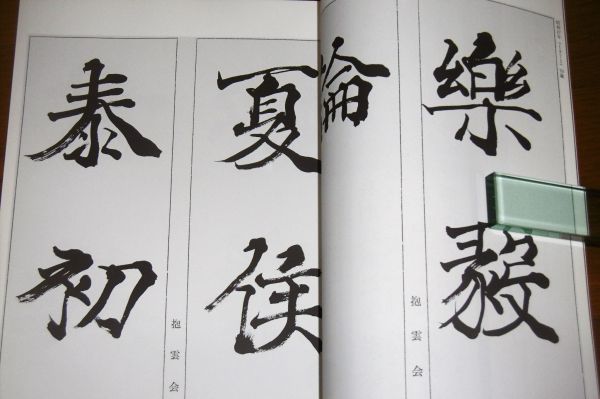 樂毅
論
抱雲会
夏侯
泰初
抱雲会